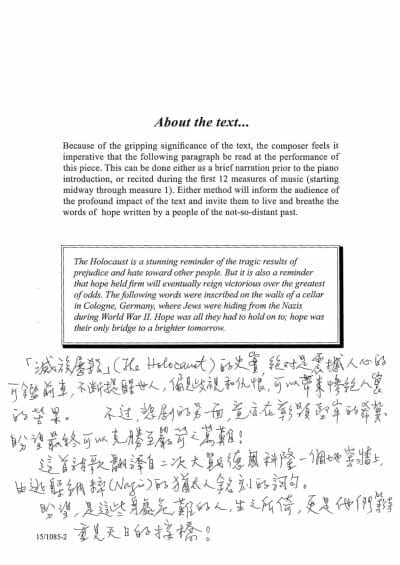 About the text...
Because of the gripping significance of the text, the composer feels it
imperative that the following paragraph be read at the performance of
this piece. This can be done either as a brief narration prior to the piano
introduction, or recited during the first 12 measures of music (starting
midway through measure 1). Either method will inform the audience of
the profound impact of the text and invite them to live and breathe the
words of hope written by a people of the not-so-distant past.
The Holocaust is a stunning reminder of the tragic results of
prejudice and hate toward other people. But it is also a reminder
that hope held firm will eventually reign victorious over the greatest
of odds. The following words were inscribed on the walls of a cellar
in Cologne, Germany, where Jews were hiding from the Nazis
during World War II. Hope was all they had to hold on to; hope was
their only bridge to a brighter tomorrow.
「滅族屠殺」(The Holocaust) 的史實,絕對是震撼人心的
可鑑前車,不斷提醒世人,偏見歧視和仇恨,可以帶來慘絕人寰
的苦果。 不過,悲劇的另一面
盼望最終可以克勝至嚴苛之萬難!
這首詩歌翻譯自二次大戰德國科隆一個地窖牆上,
由逃避納粹(Nazi)的猶太人銘刻的詞句。
盼望,是這些身處危難的人,生之所倚,更是他們等待
重見天日的橋!
15/1085-2